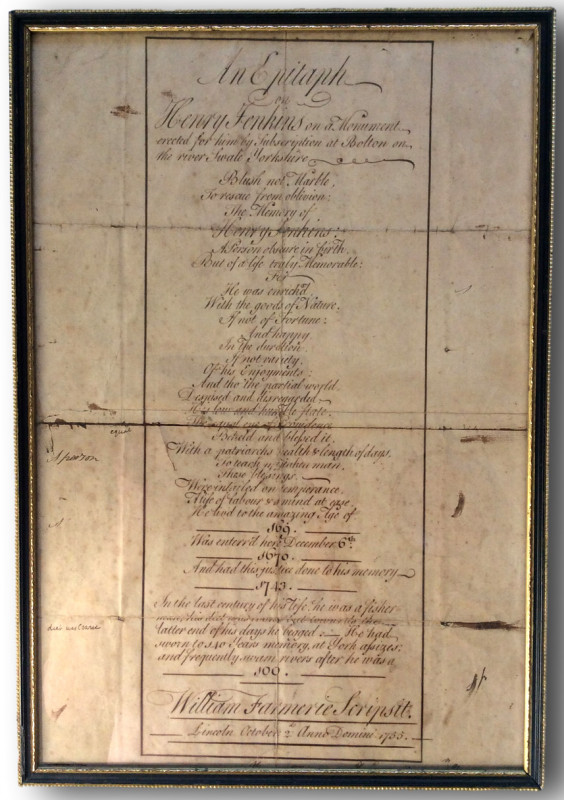 An Epitaph
on
Henry Jenkins on a Monument
erected for him by Subscription at Bolton on
the river Swale Yorkshire
Blush not Marble,
To rescue from oblivion;
The Memory of
Henry Jenkens:
A Person obscure in birth
But of a life truly Memorable:
For
He was enrich'd
With the goods of Nature,
If not of Fortune;
And happy
In the duration
If not variety.
Of his Enjoyments:
And tho' the partial world.
Despised and disregarded
His low and humble State
The equal eye of Providence
equal
Beheld and blessed it,
With a patriarchs health & length of days,
A person
To teach mistaken man,
These blessings
Were intailed on temperance,
A life of labour & a mind at ease.
He lived to the amazing Age of
169.
Was enterr'd here December 6th.
1670.
And had this justice done to his memory
1743.
In the last century of his life he was a fisher-
latter end of his days he beged. He had
sworn to 140 Years memory, at York assizes,
and frequently swam rivers after he was a
100.
William Farmerie Scripsit.
Lincoln October 2d. Anno Domini 1755.